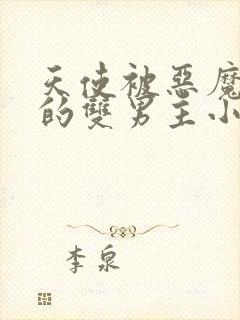 天使被惡魔
的雙男主小
李泉